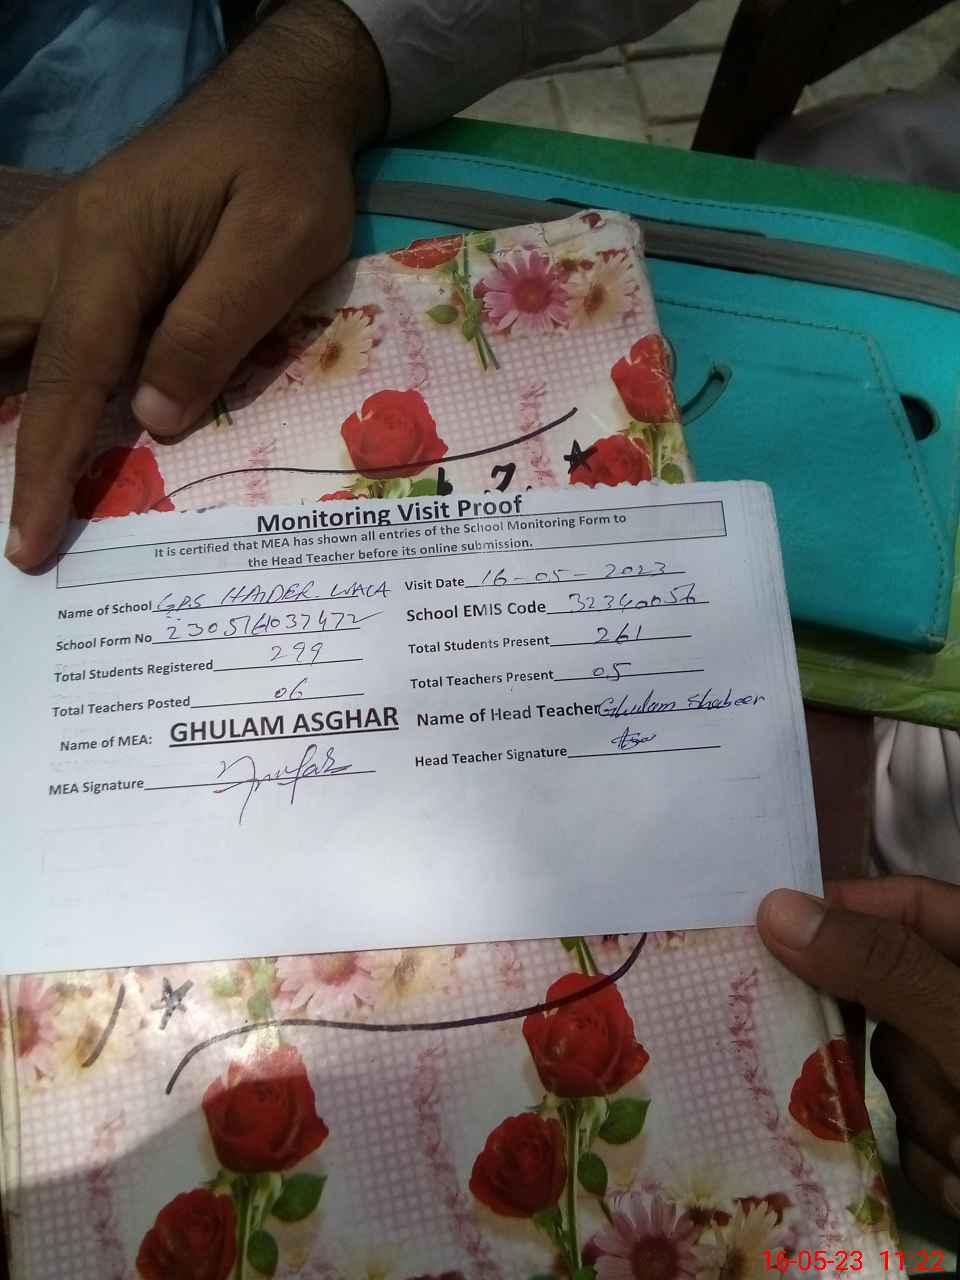 7.
Monitoring Visit Proof
It is certified that MEA has shown all entries of the School Monitoring Form to
the Head Teacher before its online submission.
Name of School GPS HAIDER WALA Visit Date 16-05-2023
School Form No School EMIS Code 32340056
Total Students Registered 299 Total Students Present 261
Total Teachers Posted 06 Total Teachers Present 05
Name of MEA: GHULAM ASGHAR Name of Head Teacher Ghulam Shabeer
MEA Signature Head Teacher Signature
16-05-23 11:22